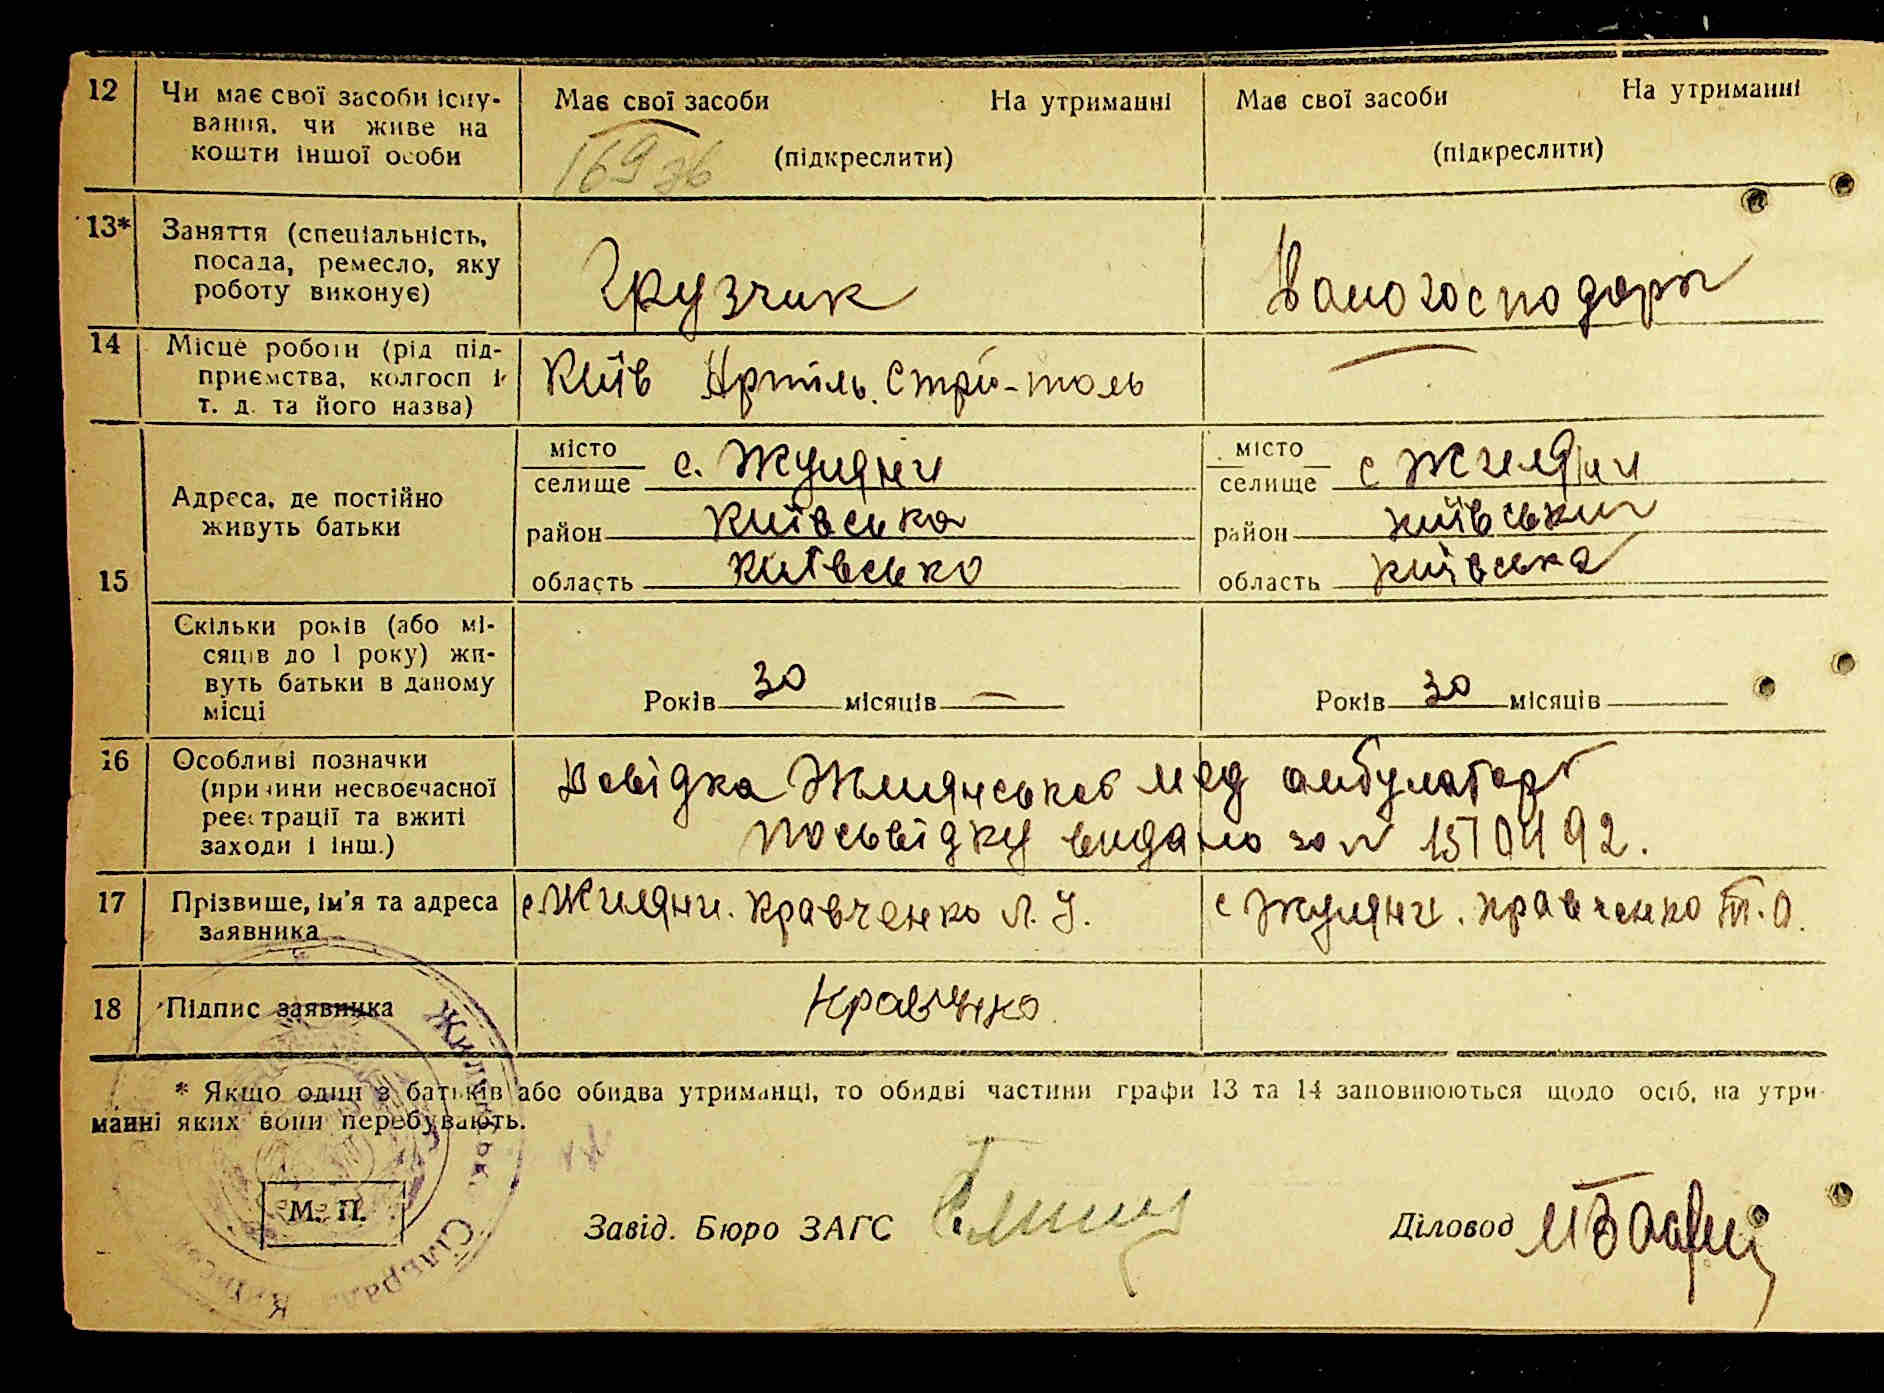 12 Чи має свої засоби існу-
вання, чи живе на
кошти іншої особи
Має свої засоби На утриманні
(підкреслити)
Має свої засоби На утриманні
(підкреслити)
13* Заняття (спеціальність,
посада, ремесло, яку
роботу виконує)
Грузчик
Домогосподарк
14 Місце роботи (рід під-
приємства, колгосп і
т. д. та його назва)
Київ Артіль.
15 Адреса, де постійно
живуть батьки
місто
селище с. Жуляни
район Київська
область Київсько
місто
селище с Жиляни
район київськи
область київська
Скільки років (або мі-
сяців до 1 року) жи-
вуть батьки в даному
місці
Років 30 місяців —
Років 30 місяців
16 Особливі позначки
(причини несвоєчасної
реєстрації та вжиті
заходи і інш.)
Довідка мед амбулатор
посьвідку видано за №
17 Прізвище, ім'я та адреса
заявника
с. Жиляни. Кравченко Л. У.
с Жуляни. Кравченко Т. О.
18 Підпис заявника
Кравченко
* Якщо один з батьків або обидва утриманці, то обидві частини графи 13 та 14 заповнюються щодо осіб, на утри-
манні яких вони перебувають.
М. П.
Завід. Бюро ЗАГС
Діловод